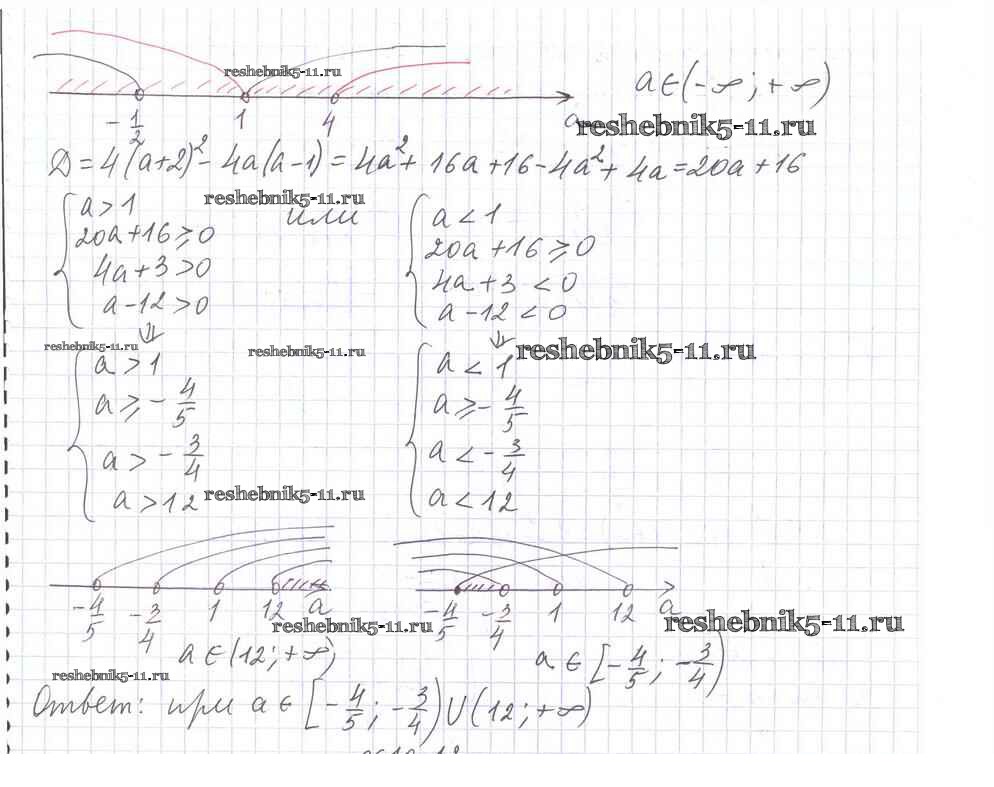 reshebnik5-11.ru
a ∈ (-∞; +∞)
-1/2 1 4 a
reshebnik5-11.ru
D = 4(a+2)² - 4a(a-1) = 4a² + 16a + 16 - 4a² + 4a = 20a + 16
reshebnik5-11.ru
a > 1 или a < 1
20a + 16 ≥ 0 20a + 16 ≥ 0
4a + 3 > 0 4a + 3 < 0
a - 12 > 0 a - 12 < 0
⇓ ⇓
reshebnik5-11.ru reshebnik5-11.ru reshebnik5-11.ru
a > 1 a < 1
a ≥ -4/5 a ≥ -4/5
a > -3/4 a < -3/4
a > 12 a < 12
reshebnik5-11.ru
-4/5 -3/4 1 12 a -4/5 -3/4 1 12 a
reshebnik5-11.ru reshebnik5-11.ru
a ∈ (12; +∞) a ∈ [-4/5; -3/4)
reshebnik5-11.ru
Ответ: при a ∈ [-4/5; -3/4) ∪ (12; +∞)